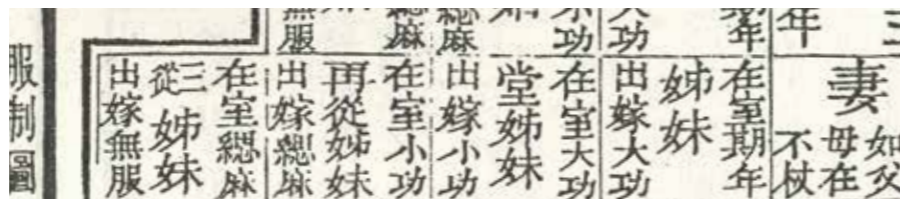 妻
如父
母在
不杖
在室期年
姊妹
出嫁大功
在室大功
堂姊妹
出嫁小功
在室小功
再從姊妹
出嫁緦麻
在室緦麻
三從姊妹
出嫁無服
服制圖